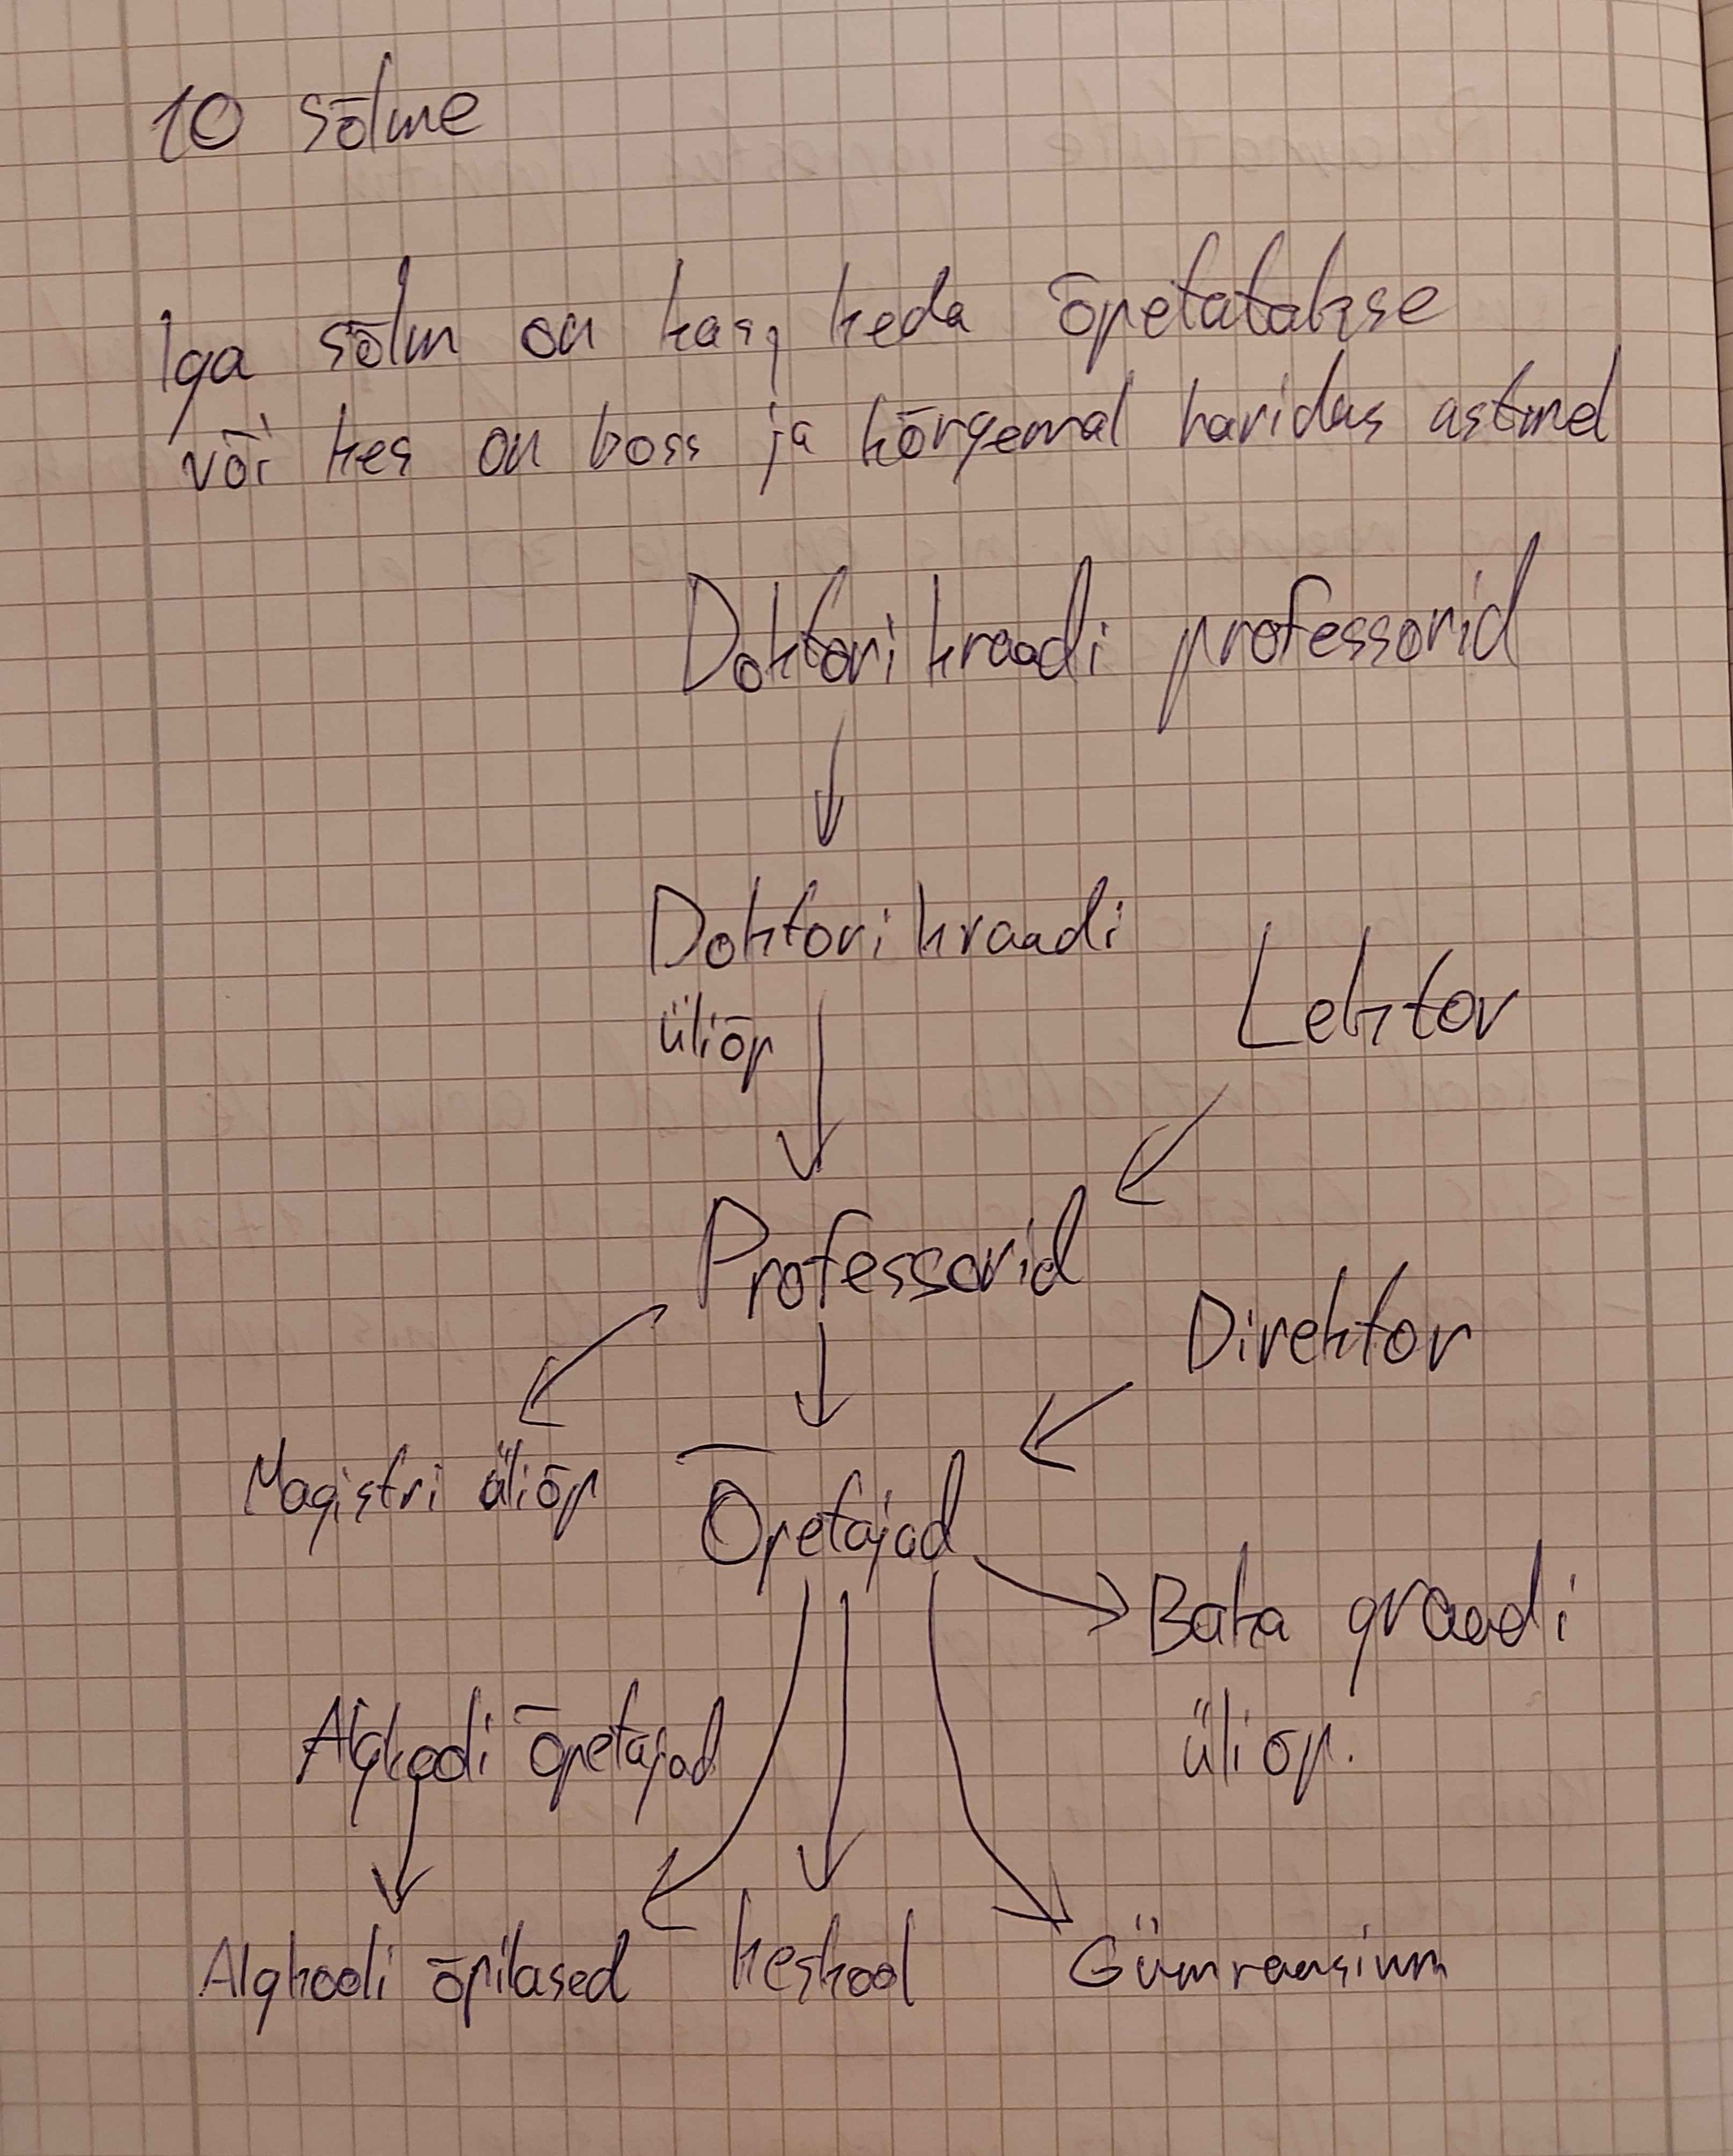 10 sõlme
Iga sõlm on kas, keda õpetatakse
või kes on boss ja kõrgemal haridus astmel
Doktori kraadi professorid
Doktori kraadi
üliõp
Lektor
Professorid
Direktor
Magistri üliõp
Õpetajad
Baka graadi
üliõp.
Algkooli õpetajad
Algkooli õpilased keskool Gümnaasium